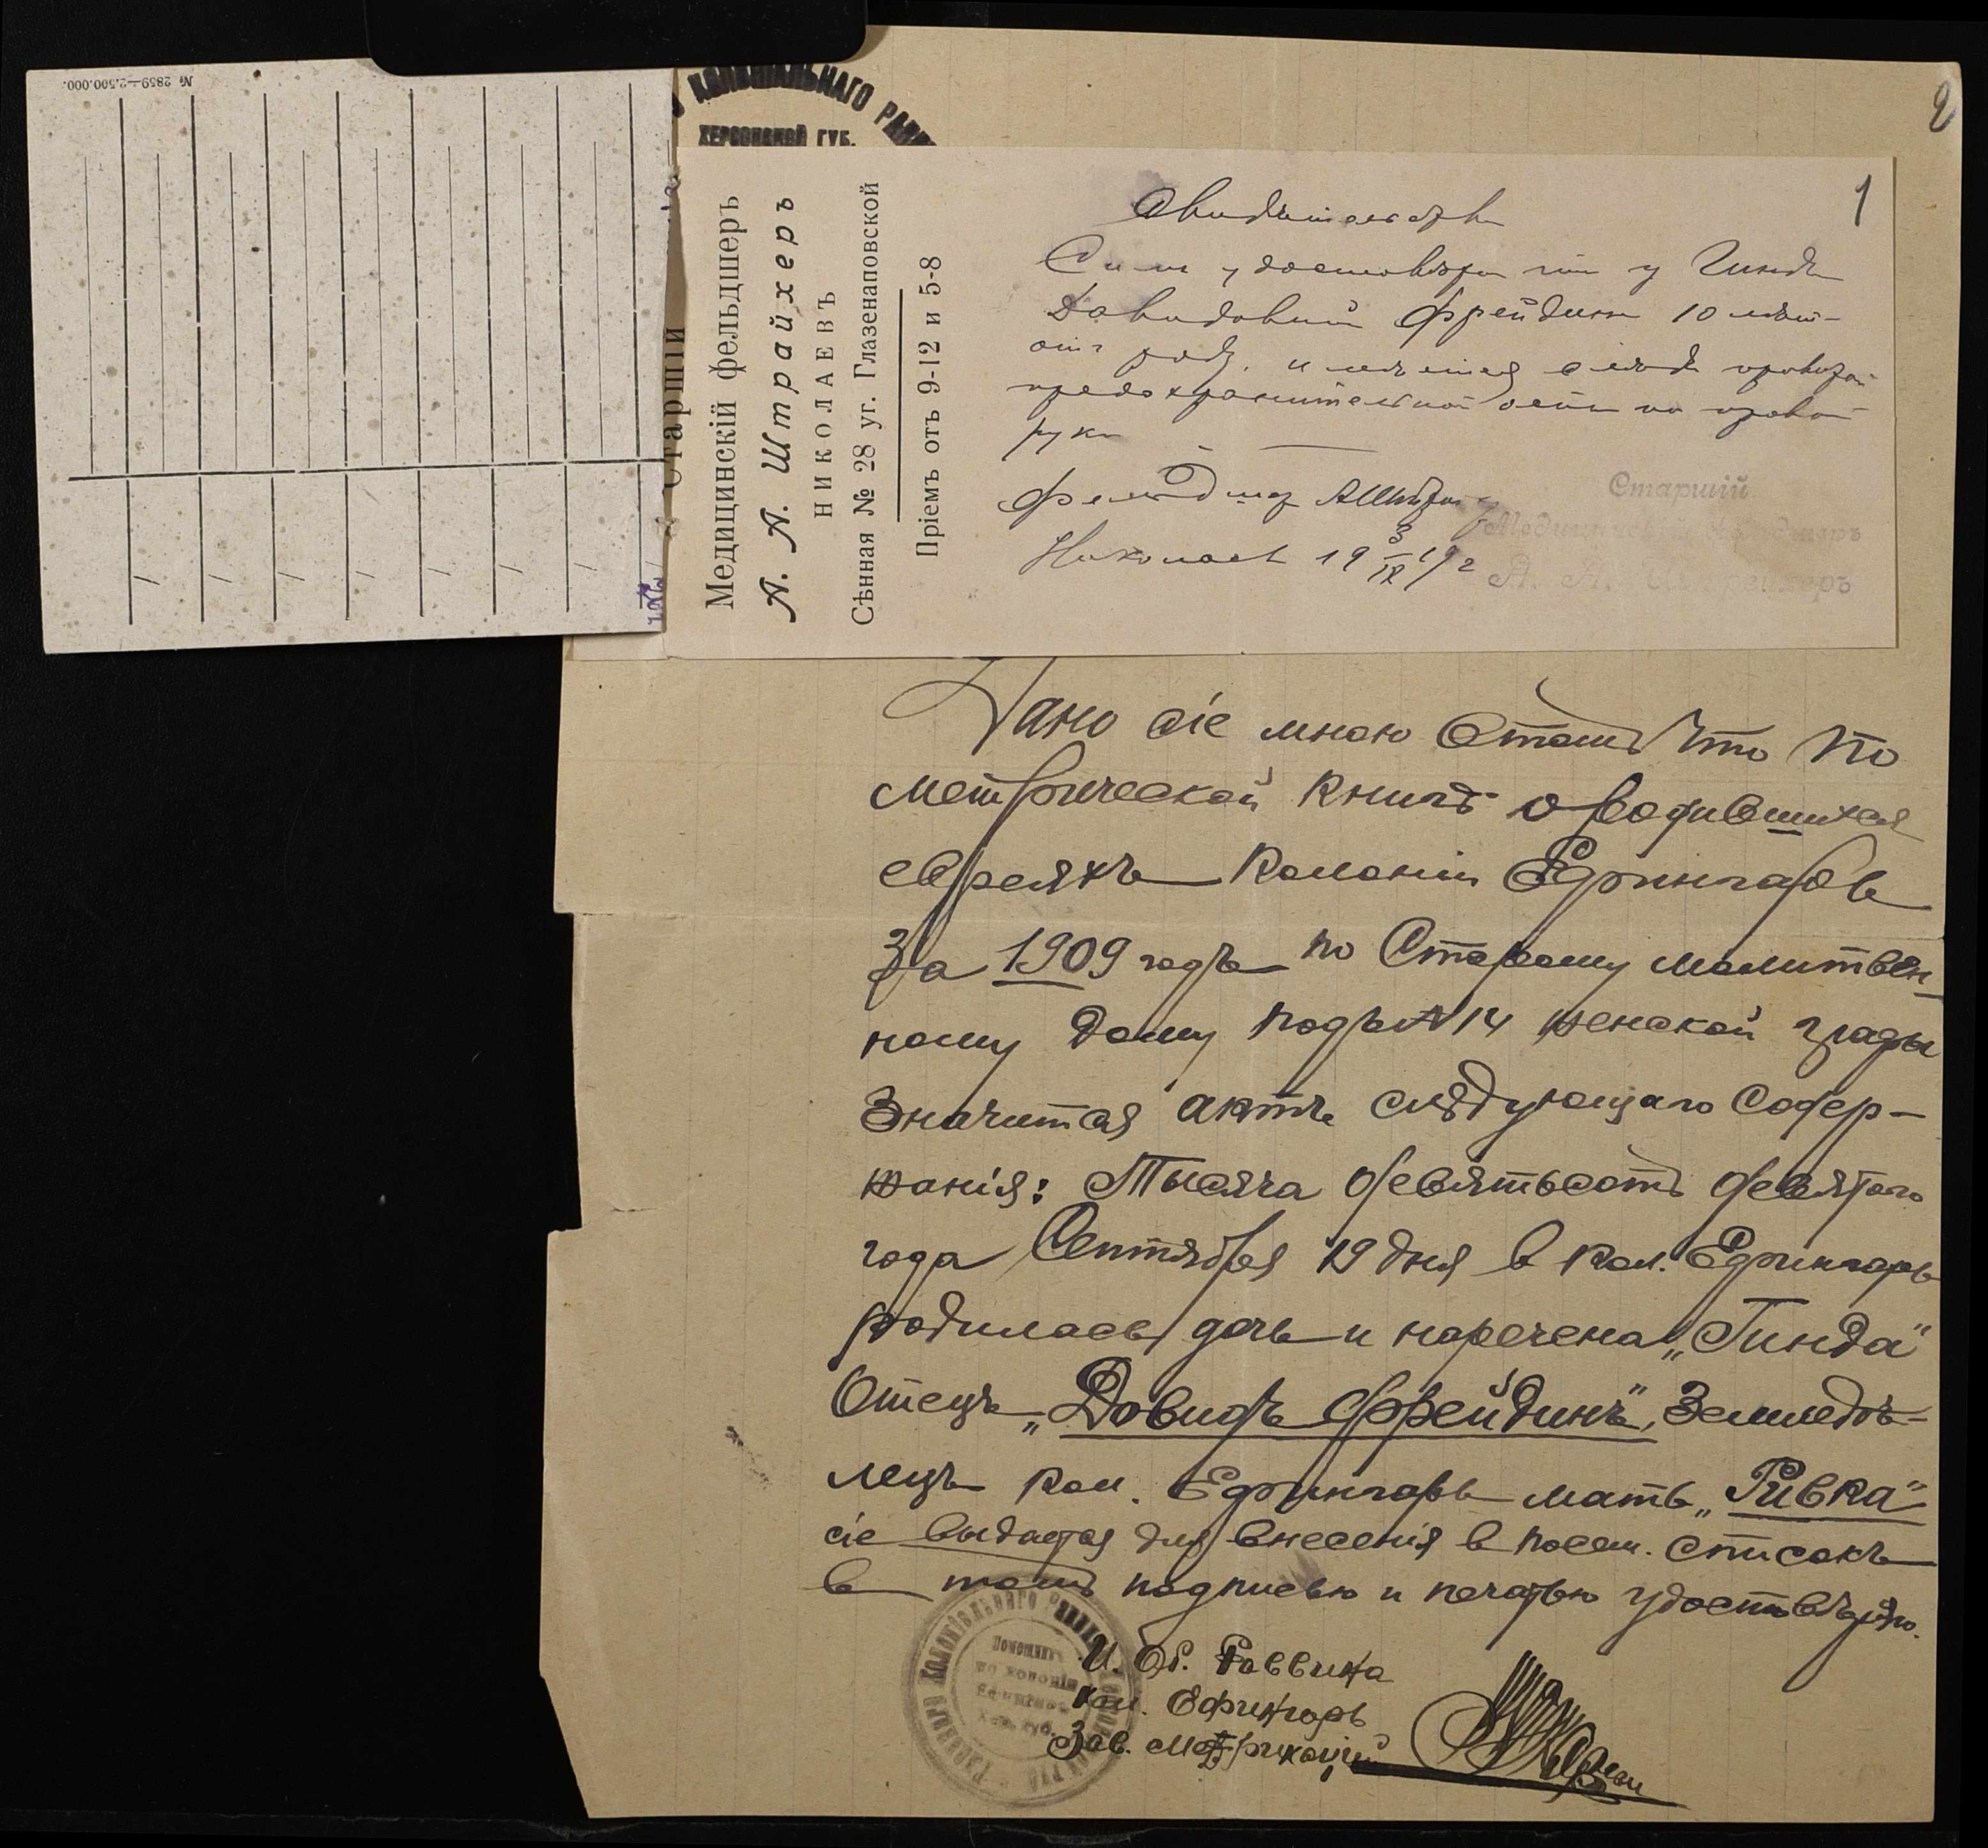 № 2859—2.500.000.
КОЛОНІАЛЬНАГО РАВВ
ХЕРСОНСКОЙ ГУБ.
2
1
Старшій
Медицинскій фельдшеръ
А. А. Штрайхеръ
НИКОЛАЕВЪ
Сѣнная № 28 уг. Глазенаповской
Пріемъ отъ 9-12 и 5-8
Свидѣтельство
Симъ удостовѣряю что у Гинды
Давидовны Фрейдинъ 10 лѣтъ
отъ роду, имѣется слѣды
предохранительной оспы на правой
руки
Фельдшер АШтра
Николаев 19
Старшій
Медицинскій фельдшеръ
А. А. Штрайхеръ
Дано сіе мною в томъ что по
метрической книгѣ о родившихся
евреяхъ колоніи Ефингаръ
За 1909 годъ по Старому молитвен-
ному дому подъ № 14 женской графы
Значится актъ слѣдующаго Содер-
жанія: Тысяча девятьсотъ девятого
года Сентября 19 дня в кол. Ефингаръ
родилась дочь и наречена „Гинда"
Отецъ „Довидъ Фрейдинъ", Земледѣ-
лецъ кол. Ефингаръ мать „Ривка"
сіе выдается для внесенія в посем. списокъ
в томъ подписью и печатью удостовѣряю.
И. Об. Раввина
кол. Ефингаръ
Зав. Метрикаціей
КОЛОНІАЛЬНАГО РАВВИНА
Помощникъ
по колоніи
Ефингаръ
Херс. губ.